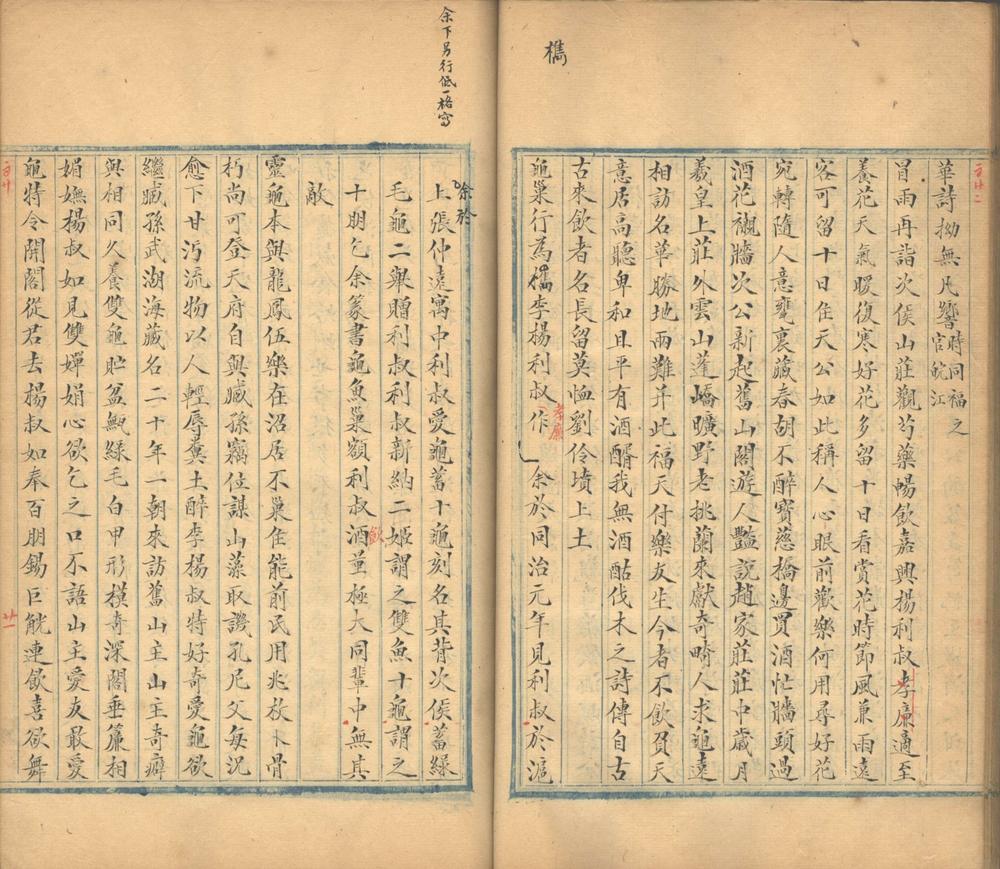 檇
華詩拗無凡響時同福之官皖江
冒雨再詣次侯山莊觀芍藥暢飲嘉興楊利叔孝廉適至
養花天氣暖復寒好花多留十日看賞花時節風兼雨遠
客可留十日住天公如此稱人心眼前歡樂何用尋好花
宛轉隨人意甕裏藏春胡不醉寶慈橋邊買酒忙牆頭過
酒花襯牆次公新起舊山閣遊人豔說趙家莊莊中歲月
羲皇上莊外雲山蓬嶠曠野老挑蘭來獻奇畸人求龜遠
相訪名華勝地兩難并此福天付樂友生今者不飲負天
意居高聽卑和且平有酒醑我無酒酤伐木之詩傳自古
古來飲者名長留莫恤劉伶墳上土
龜巢行為檇李楊利叔孝廉作
余於同治元年見利叔於滬
余下另行低一格寫
余於
上張仲遠寓中利叔愛龜蓄十龜刻名其背次侯蓄綠
毛龜二舉贈利叔利叔新納二姬謂之雙魚十龜謂之
十朋乞余篆書龜魚巢額利叔飲酒量極大同輩中無其
敵
靈龜本與龍鳳伍樂在沼居不巢住能前民用兆枚卜骨
朽尚可登天府自與臧孫竊位謀山藻取譏孔尼父每況
愈下甘汚流物以人輕辱糞土醉李楊叔特好奇愛龜欲
繼臧孫武湖海藏名二十年一朝來訪舊山主山主奇癖
與相同久養雙龜貯盆甒綠毛白甲形模奇深閣垂簾相
媚嫵楊叔如見雙嬋娟心欲乞之口不語山主愛友最愛
龜特令開閣從君去楊叔如奉百朋錫巨觥連飲喜欲舞
廿一